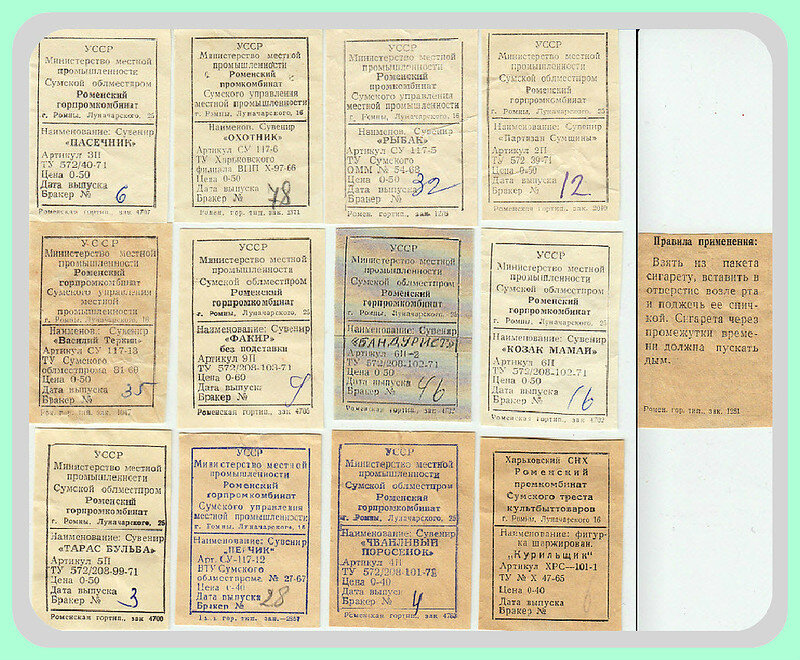 УССР
Министерство местной
промышленности
Сумской облместпром
Роменский
горпромкомбинат
г. Ромны, Луначарского, 25
Наименование: Сувенир
«ПАСЕЧНИК»
Артикул 3П
ТУ 572/40-71
Цена 0-50
Дата выпуска
Бракер № 6
Роменская гортип., зак. 4707
УССР
Министерство местной
промышленности
Роменский
промкомбинат
Сумского управления
местной промышленности
г. Ромны, Луначарского, 16
Наименов. Сувенир
«ОХОТНИК»
Артикул СУ 117-6
ТУ Харьковского
филиала ВПП Х-97-66
Цена 0-50
Дата выпуска
Бракер № 78
Ромен. гор. тип., зак.
УССР
Министерство местной
промышленности
Роменский
промкомбинат
Сумского управления
местной промышленности
г. Ромны, Луначарского, 16
Наименов. Сувенир
«РЫБАК»
Артикул СУ 117-5
ТУ Сумского
ОММ № 54-68
Цена 0-50
Дата выпуска
Бракер № 32
Ромен. гортип., зак.
УССР
Министерство местной
промышленности
Сумской облместпром
Роменский
горпромкомбинат
г. Ромны, Луначарского, 25
Наименование: Сувенир
«Партизан Сумщины»
Артикул 2П
ТУ 572 39-71
Цена 0-50
Дата выпуска
Бракер № 12
Роменская гортип., зак.
УССР
Министерство местной
промышленности
Роменский
промкомбинат
Сумского управления
местной
промышленности
г. Ромны, Луначарского, 16
Наименов: Сувенир
«Василий Теркин»
Артикул СУ 117-13
ТУ Сумского
облместпрома 81-69
Цена 0-50
Дата выпуска
Бракер № 35
УССР
Министерство местной
промышленности
Сумской облместпром
Роменский
горпромкомбинат
г. Ромны, Луначарского, 25
Наименование: Сувенир
«ФАКИР»
без подставки
Артикул 9П
ТУ 572/208-103-71
Цена 0-60
Дата выпуска
Бракер № 9
Роменская гортип., зак. 4705
УССР
Министерство местной
промышленности
Сумской облместпром
Роменский
горпромкомбинат
г. Ромны, Луначарского, 25
Наименование: Сувенир
«БАНДУРИСТ»
Артикул 6П-2
ТУ 572/208-102-71
Цена 0-50
Дата выпуска
Бракер № 46
Роменская гортип., зак.
УССР
Министерство местной
промышленности
Сумской облместпром
Роменский
горпромкомбинат
г. Ромны, Луначарского, 25
Наименование: Сувенир
«КОЗАК МАМАЙ»
Артикул 6П
ТУ 572/208-102-71
Цена 0-50
Дата выпуска
Бракер № 16
Роменская гортип., зак. 4702
Правила применения:
Взять из пакета
сигарету, вставить в
отверстие возле рта
и поджечь ее спич-
кой. Сигарета через
промежутки време-
ни должна пускать
дым.
Ромен. гор. тип., зак. 1281
УССР
Министерство местной
промышленности
Сумской облместпром
Роменский
горпромкомбинат
г. Ромны, Луначарского, 25
Наименование: Сувенир
«ТАРАС БУЛЬБА»
Артикул 5П
ТУ 572/208-99-71
Цена 0-50
Дата выпуска
Бракер № 3
Роменская гортип., зак. 4700
УССР
Министерство местной
промышленности
Роменский
горпромкомбинат
Сумского управления
местной промышленности
г. Ромны, Луначарского, 16
Наименование: Сувенир
Арт. СУ-117-12
ВТУ Сумского
облместпрома № 21-67
Цена 0-40
Дата выпуска
Бракер № 28
УССР
Министерство местной
промышленности
Сумской облместпром
Роменский
горпромкомбинат
г. Ромны, Луначарского, 25
Наименование: Сувенир
«ЧВАНЛИВЫЙ
ПОРОСЕНОК»
Артикул 4П
ТУ 572/208-101-71
Цена 0-40
Дата выпуска
Бракер № 4
Роменская гортип., зак.
Харьковский СНХ
Роменский
промкомбинат
Сумского треста
культбыттоваров
г. Ромны, Луначарского 16
Наименование: фигур-
ка шаржирован.
„Курильщик"
Артикул ХРС—101-1
ТУ № Х 47-65
Цена 0-40
Дата выпуска
Бракер №